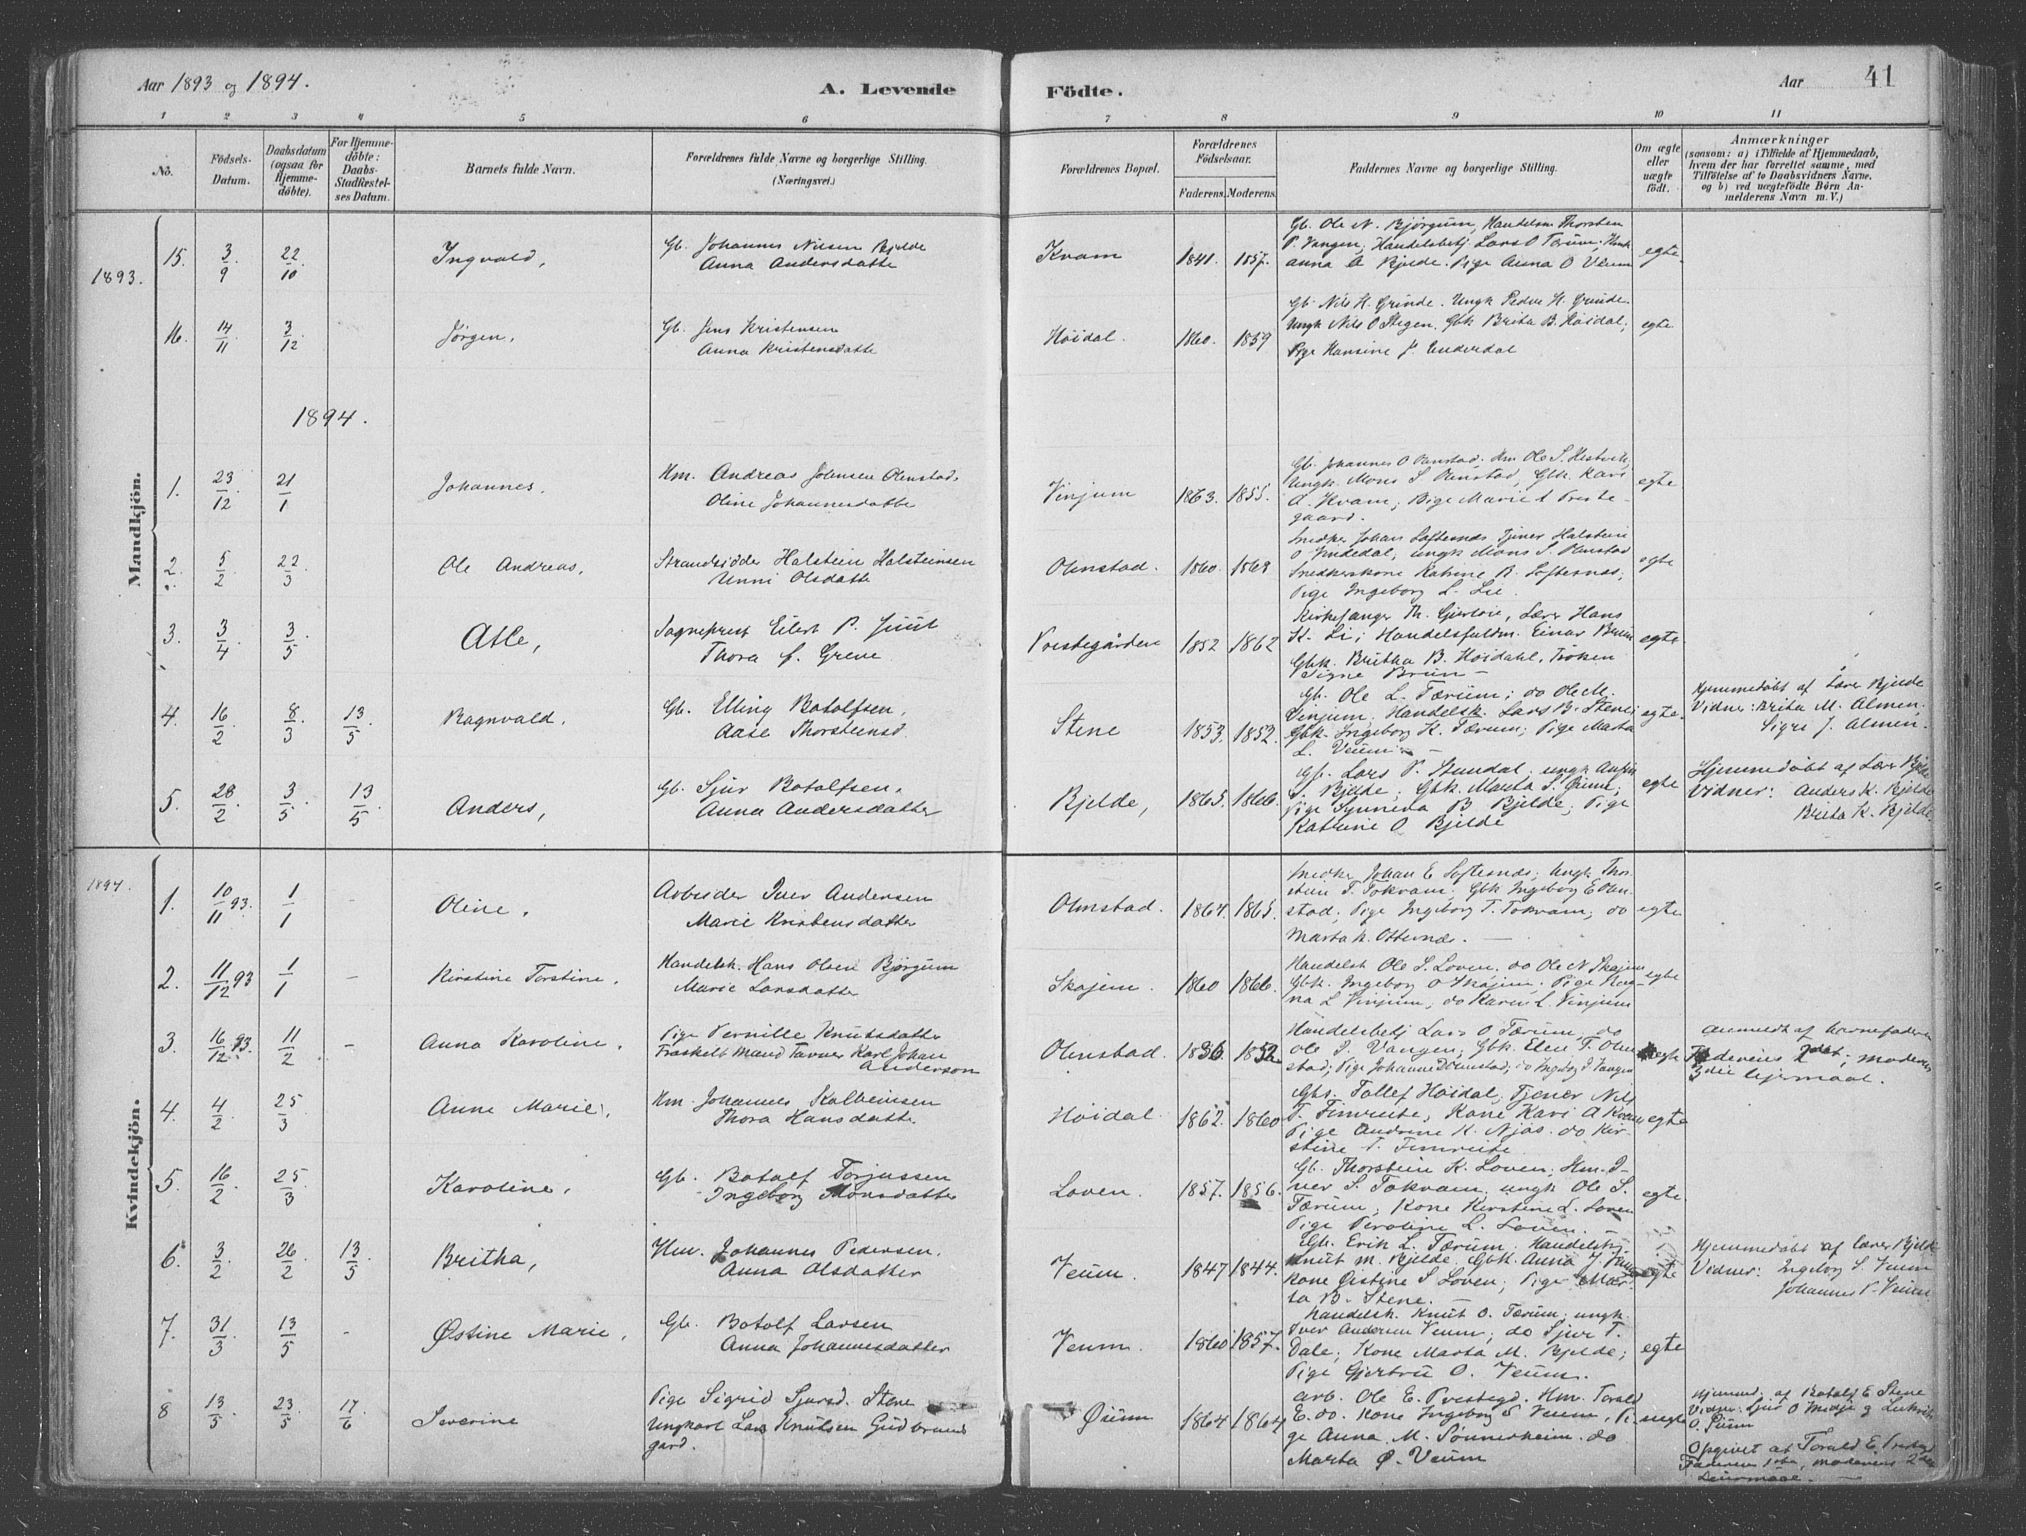 Aar 1893 og 1894.
A. Levende
Födte.
Aar
41
1 2 3 4 5 6 7 8 9 10 11
No.
Födsels-
Datum.
Daabsdatum
(ogsaa for
Hjemme-
döbte).
For Hjemme-
döbte:
Daabs-
Stadfæstel-
ses Datum.
Barnets fulde Navn.
Forældrenes fulde Navne og borgerlige Stilling.
(Næringsvei.)
Forældrenes Bopæl.
Forældrenes
Födselsaar.
Faderens. Moderens.
Faddernes Navne og borgerlig Stilling.
Om ægte
eller
uægte
födt.
Anmærkninger
(saasom: a) i Tilfælde af Hjemmedaab,
hvem der har forrettet samme, med
Tilföielse af to Daabsvidners Navne.
og b) ved uægtefödte Börn An-
melderens Navn m. V.)
Mandkjön.
1893.
15. 3/9 22/10 Ingvald,
Gb. Johannes Nilsen Bjelde
Anna Andersdatte
Kvam 1841. 1857.
Gb. Ole N. Bjørgum, Handelsm Thorsten
P. Vangen, Handelsbetj Lars O Tærum,
Anna A Bjelde. Pige Anna O Veum
egte.
16. 14/11 3/12 Jörgen,
Gb. Jens Kristensen
Anna Kristensdatte
Höidal. 1860. 1859
Gb. Nils H. Grinde. Ungk Peder H. Grinde.
Ungk Nils O Stegen. Gbk Brita B. Höidal,
Pige Hansine J. Underdal
egte
1894.
1. 23/12 21/1 Johannes,
Hm. Andreas Johnsen Olmstad,
Oline Johannesdatte
Vinjum 1863. 1855.
Gb. Johannes O Onstad. Hm Ole S.
Ungk. Mons S Olmstad, Gbk Kari
A. Kvam, Pige Marie Preste-
gaard.
egte
2. 5/2 22/3 Ole Andreas,
Strandsidder Halstein Halsteinsen
Unni Olsdatte
Olmstad. 1860. 1868
Snedker Johan Lofternes Tjener Halstein
O Undedal, ungk Mons S. Olmstad
Snedkerskone Katrine B. Lofternes,
Pige Ingeborg L. Lie.
egte
3. 3/4 3/5 Atle,
Sogneprest Eilert P. Juul
Thora f. Greve
Prestegården 1852 1862
Kirkesanger Th. Gjerløie, Lærer Hans
K. Li; Handelsfuldm. Einar Brun
Gbk. Britha B. Höidahl, Frøken
Signe Brun –
egte
4. 16/2 8/3 13/5 Ragnvald.
Gb. Elling Botolfsen,
Aase Thorsteinsd.
Stene 1853. 1852.
Gb. Ole L. Tærum; do Ole M.
Vinjum. Handelsk. Lars B. Stene
Gbk. Ingeborg K. Tærum; Pige Marta
L. Veum –
egte.
Hjemmedøbt af Lærer Bjelde
Vidner: Brita M. Almen.
Sigri J. Almen.
5. 28/2 3/5 13/5 Anders,
Gb. Sjur Botolfsen,
Anna Andersdatter
Bjelde, 1865. 1866.
Gb. Lars P. Stundal, ungk Anfin
S. Bjelde, Gbk. Marta S. Øium,
Pige Synneva B Bjelde; Pige
Katrine O Bjelde
egte
Hjemmedøbt af Lærer Bjelde
Vidner: Anders K. Bjelde
Brita K. Bjelde.
Kvindekjön.
1894.
1. 10/11 93. 1/1 – Oline,
Arbeider Iver Andersen
Marie Kristensdatter
Olmstad. 1864. 1865.
Snedker Johan E Lofternes; Ungk Tho-
stein T. Tokvam, Gbk Ingeborg E Olm-
stad, Pige Ingeborg T. Tokvam, do
Marta K. Otternes. –
egte
2. 11/12 93 1/1 – Kirstine Torstine,
Handelsk. Hans Olsen Bjørgum
Marie Larsdatte
Skajem. 1860 1866.
Handelsk Ole S. Loven, do Ole N Skajem
Gbk. Ingeborg O Skajem. Pige
na L Vinjum, do Karen L. Vinjum
egte
3. 16/12 93. 11/2 – Anna Karoline,
Pige Pernille Knutsdatter
Fraskilt Mand Karl Johan
Anderson
Olmstad. 1836. 1852.
Handelsbetj Lars O Tærum, do
Ole J. Vangen, Gbk. Elen T. Olm
stad; Pige Johanne Olmstad; do Ingeborg J Vangen
uegte
Anmeldt af barnefaderen
Faderens 1ste, moderens
3die leiermaal.
4. 4/2 25/3 Anne Marie,
Hm. Johannes Kolbeinsen
Thora Hansdatter
Höidal. 1862. 1860
Gbs. Tollef Höidal, Tjener Nils
T. Fimreite, Kone Kari A Kvam
Pige Andrine K. Njøs. do Kir-
stine T. Fimreite.
egte
5. 16/2 25/3 Karoline,
Gb. Botolf Torjussen
Ingeborg Monsdatter
Loven. 1857. 1856.
Gb. Thorstein K. Loven. Hm. I-
ver S. Tokvam, ungk Ole S.
Tærum, Kone Kirstine L. Loven
Pige Peroline L. Loven. –
egte.
6. 3/2 26/2 13/5 Britha,
Hm. Johannes Pedersen.
Anna Olsdatter
Veum. 1847 1844.
Gb. Erik L. Tærum, Handelsk.
Knut M. Bjelde, Gbk. Anna J. Veum
Kone Østine S Loven; Pige Mar-
ta B. Stene. –
egte
Hjemmedøbt af lærer Bjelde
Vidner: Ingeborg S. Veum
Johannes P. Veum
7. 31/3 13/5 – Østine Marie,
Gb. Botolf Larsen
Anna Johannesdatter
Veum. 1860 1857.
Handelsk. Knut O. Tærum, ungk.
Iver Andersen Veum, do Sjur T.
Dale; Kone Marta M. Bjelde;
Pige Gjertru O. Veum.
egte
8 13/5 23/5 17/6 Severine
Pige Sigrid Sjursd. Stene
Ungkarl Lars Knutsen Gudbrands
gard.
Øium 1864 1864
Arb. Ole E. Prestegd. Hm. Torald
E. do. Kone Ingeborg S Veum, Pi-
ge Anna M. Sönnerheim. do
Marta Ø. Veum
uegte
Hjemmed. af Botolf E Stene
Vidner: Sjur O Melje og
O. Øium
Opgivet af Torald E. Prestegd
Faderens 1ste, moderens 2det
Leiermaal. –